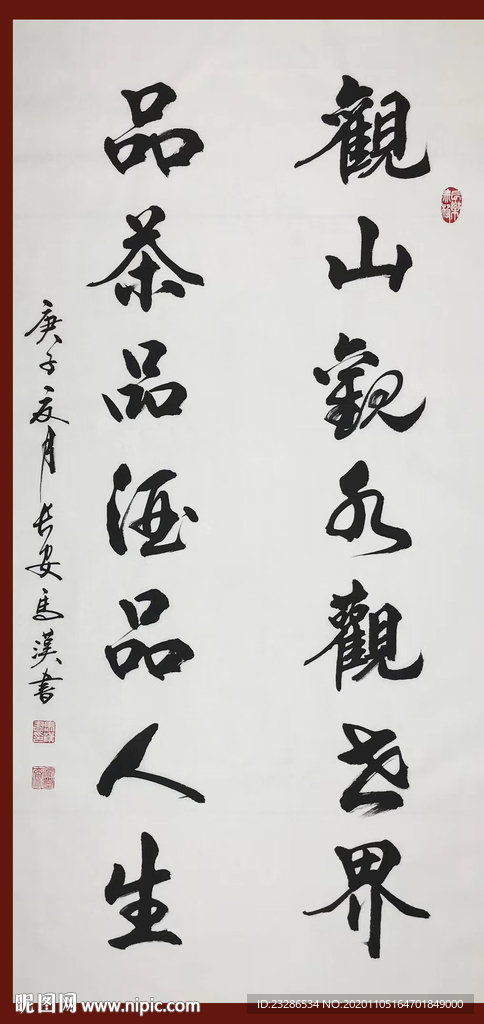 觀山觀水觀世界
品茶品酒品人生
庚子夏月長安馬漢書
昵图网 www.nipic.com
ID:23286534 NO:20201105164701849000